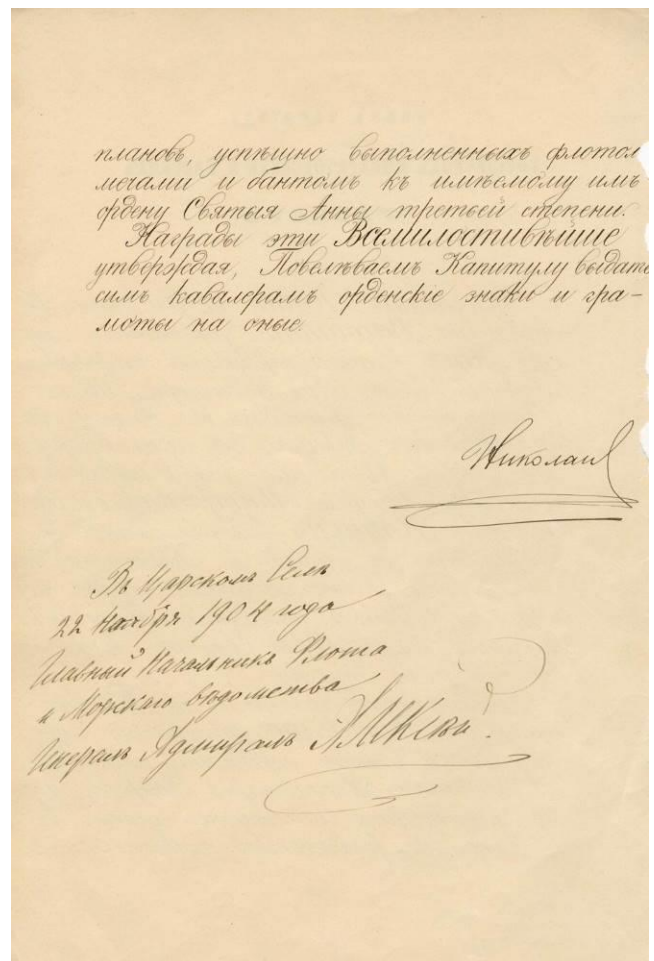 плановъ, успѣшно выполненныхъ флотом
мечами и бантомъ къ имѣемому имъ
ордену Святыя Анны третьей степени.
Награды эти Всемилостивѣйше
утверждая, Повелѣваемъ Капитулу выдать
симъ кавалерамъ орденскіе знаки и гра-
моты на оные.
Николай
Въ Царскомъ Селѣ
22 Ноября 1904 года
Главный Начальникъ Флота
и Морскаго вѣдомства
Генералъ Адмиралъ